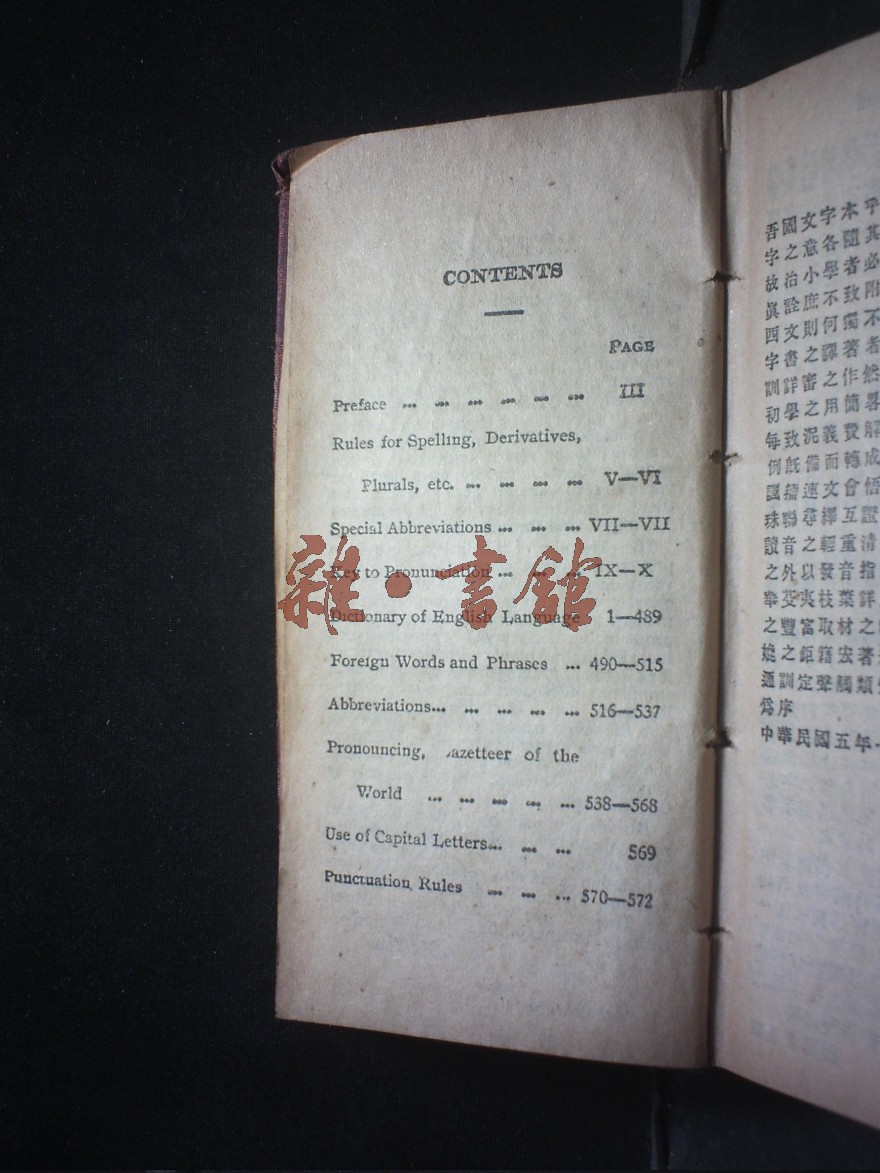 CONTENTS
PAGE
Preface ... ... ... ... ... ... III
Rules for Spelling, Derivatives,
Plurals, etc. ... ... ... ... V—VI
Special Abbreviations ... ... ... VII—VII
Key to Pronunciation ... ... ... IX—X
Dictionary of English Language 1—489
Foreign Words and Phrases ... 490—515
Abbreviations... ... ... ... ... 516—537
Pronouncing, azetteer of the
World ... ... ... ... ... 538—568
Use of Capital Letters... ... ... 569
Punctuation Rules ... ... ... 570—572
雜·書館
吾國文字本乎
字之意各隨其
故治小學者必
眞詮庶不致附
西文則何獨不
字書之譯著者
訓詳審之作然
初學之用簡畧
每致泥義費解
例旣備而轉成
諷籀連文會悟
珠聯尋擇互證
讀音之輕重清
之外以發音指
華芟夷枝葉詳
之豐富取材之
嬈之鉅籍宏著
通訓定聲觸類
爲序
中華民國五年